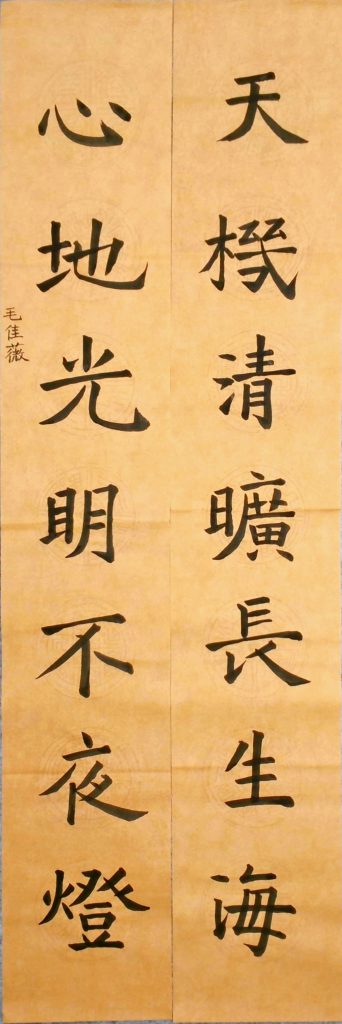 天機清曠長生海
心地光明不夜燈
毛佳薇